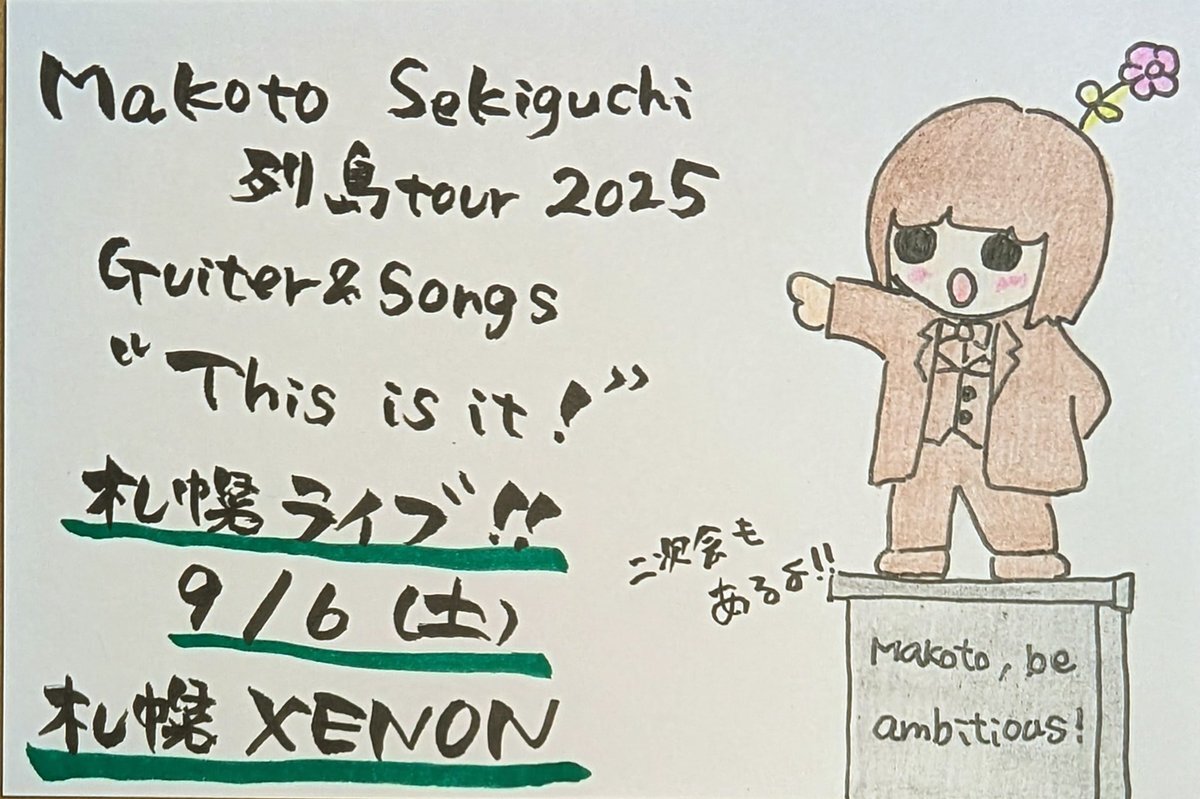 Makoto Sekiguchi
列島tour 2025
Guiter&Songs
"This is it!"
札幌ライブ!!
9/6(土)
札幌 XENON
二次会も
あるよ!!
Makoto, be
ambitious!